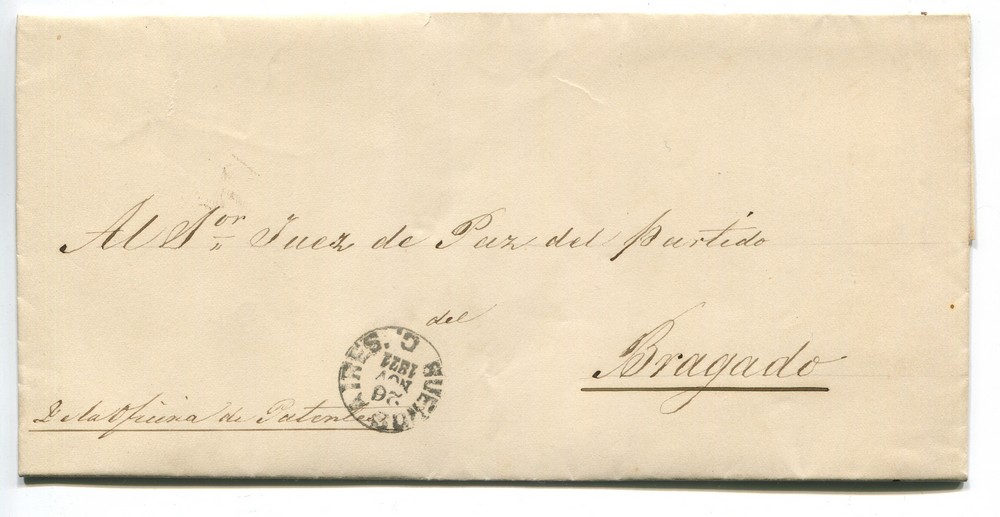 Al Sor Juez de Paz del Partido
del
Bragado
De la Oficina de Patentes
BUENOS AIRES. C.
26
NOV
1872